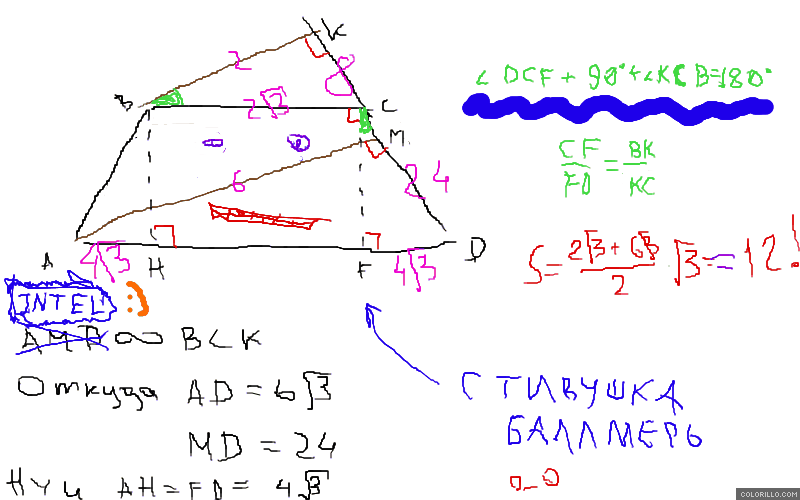 K
2
8
B
2√3
C
M
6
24
A
4√3
H
F
4√3
D
∠ DCF + 90° + ∠KCB = 180°
CF = BK
FD KC
S = 2√3 + 6√3 √3 = 12!
2
INTEL :)
AMD ∞ BCK
Откуда AD = 6√3
MD = 24
Ну и AH = FD = 4√3
СТИВУШКА
БАЛЛМЕРЬ
o_O
COLORILLO.COM